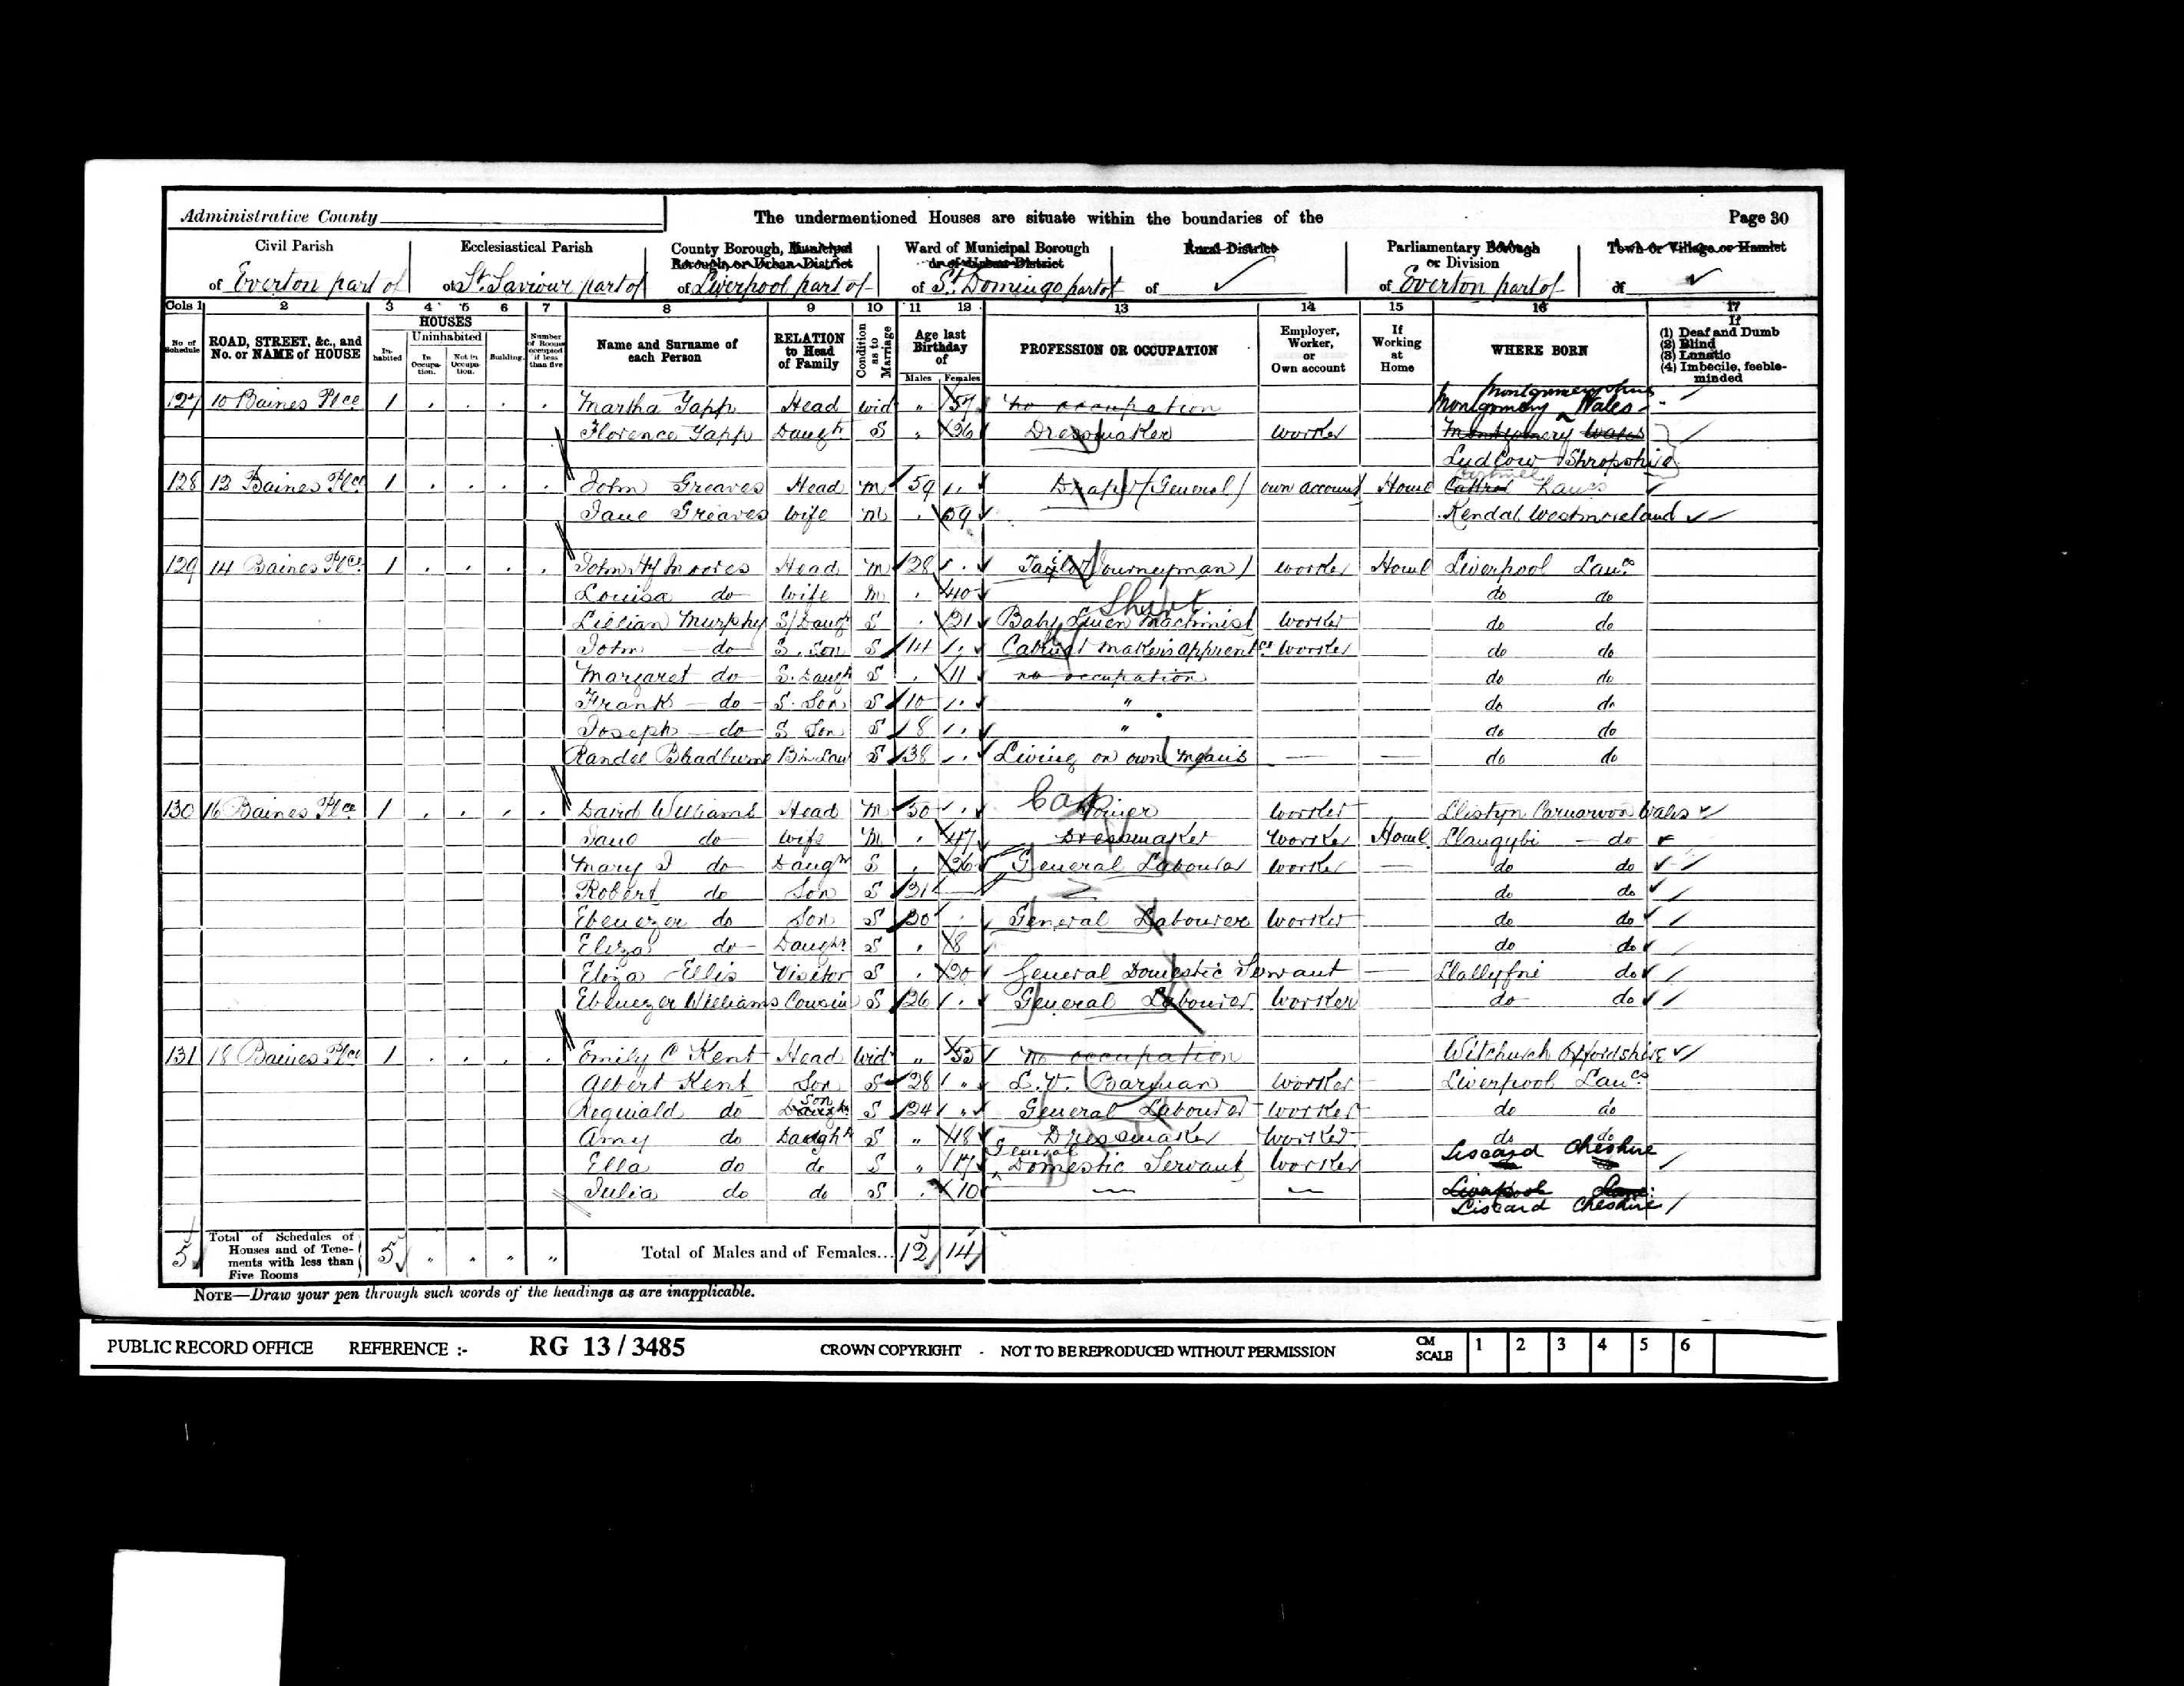 Administrative County
The undermentioned Houses are situate within the boundaries of the
Page 30
Civil Parish
of Everton part of
Ecclesiastical Parish
of St. Saviour part of
County Borough, Municipal
Borough, or Urban District
of Liverpool part of
Ward of Municipal Borough
or of Urban District
of St. Domingo part of
Rural District
of
Parliamentary Borough
or Division
of Everton part of
Town or Village or Hamlet
of
Cols 1 2 3 4 5 6 7 8 9 10 11 12 13 14 15 16 17
No. of Schedule
ROAD, STREET, &c., and No. or NAME of HOUSE
HOUSES
Inhabited
Uninhabited
In Occupation.
Not in Occupation.
Building.
Number of Rooms occupied if less than five
Name and Surname of each Person
RELATION to Head of Family
Condition as to Marriage
Age last Birthday of
Males Females
PROFESSION OR OCCUPATION
Employer, Worker, or Own account
If Working at Home
WHERE BORN
If
(1) Deaf and Dumb
(2) Blind
(3) Lunatic
(4) Imbecile, feeble-minded
Montgomeryshire
127 10 Baines Plce 1 Martha Yapp Head Wid 57 no occupation Montgomery Wales
Florence Yapp Daugh S 26 Dressmaker Worker Montgomery Wales
Ludlow Shropshire
128 12 Baines Plce 1 John Greaves Head M 59 Draper (General) own account Home Cartmel Lancs
Jane Greaves Wife M 59 Kendal Westmoreland
129 14 Baines Plce 1 John Hy Moores Head M 28 Tailor (Journeyman) Worker Home Liverpool Lancs
Louisa do Wife M 40 do do
Shirt
Lillian Murphy S/Daugh S 21 Baby Linen Machinist Worker do do
John do S. Son S 14 Cabinet makers apprentce Worker do do
Margaret do S. Daugh S 11 no occupation do do
Frank do S. Son S 10 " do do
Joseph do S Son S 8 " do do
Randle Bradburne B in Law S 38 Living on own means do do
130 16 Baines Plce 1 David Williams Head M 50 Joiner Worker Llistyn Carnarvon Wales
Jane do Wife M 47 Dressmaker Worker Home Llangybi do
Mary J do Daughr S 26 General Labourer Worker do do
Robert do Son S 21 do do
Ebenezer do Son S 20 General Labourer Worker do do
Eliza do Daughr S 8 do do
Eliza Ellis Visitor S 20 General Domestic Servant Llallyfni do
Ebenezer Williams Cousin S 26 General Labourer Worker do do
131 18 Baines Plce 1 Emily C Kent Head Wid 53 no occupation Witchurch Oxfordshire
Albert Kent Son S 28 L.V. Barman Worker Liverpool Lancs
Reginald do Son S 24 General Labourer Worker do do
Amy do Daughr S 18 Dressmaker Worker do do
Ella do do S 17 General Domestic Servant Worker Liscard Cheshire
Julia do do S 10 Liverpool Lanc
Liscard Cheshire
5 Total of Schedules of Houses and of Tenements with less than Five Rooms 5 Total of Males and of Females... 12 14
NOTE—Draw your pen through such words of the headings as are inapplicable.
PUBLIC RECORD OFFICE REFERENCE :- RG 13 / 3485 CROWN COPYRIGHT - NOT TO BE REPRODUCED WITHOUT PERMISSION CM SCALE 1 2 3 4 5 6